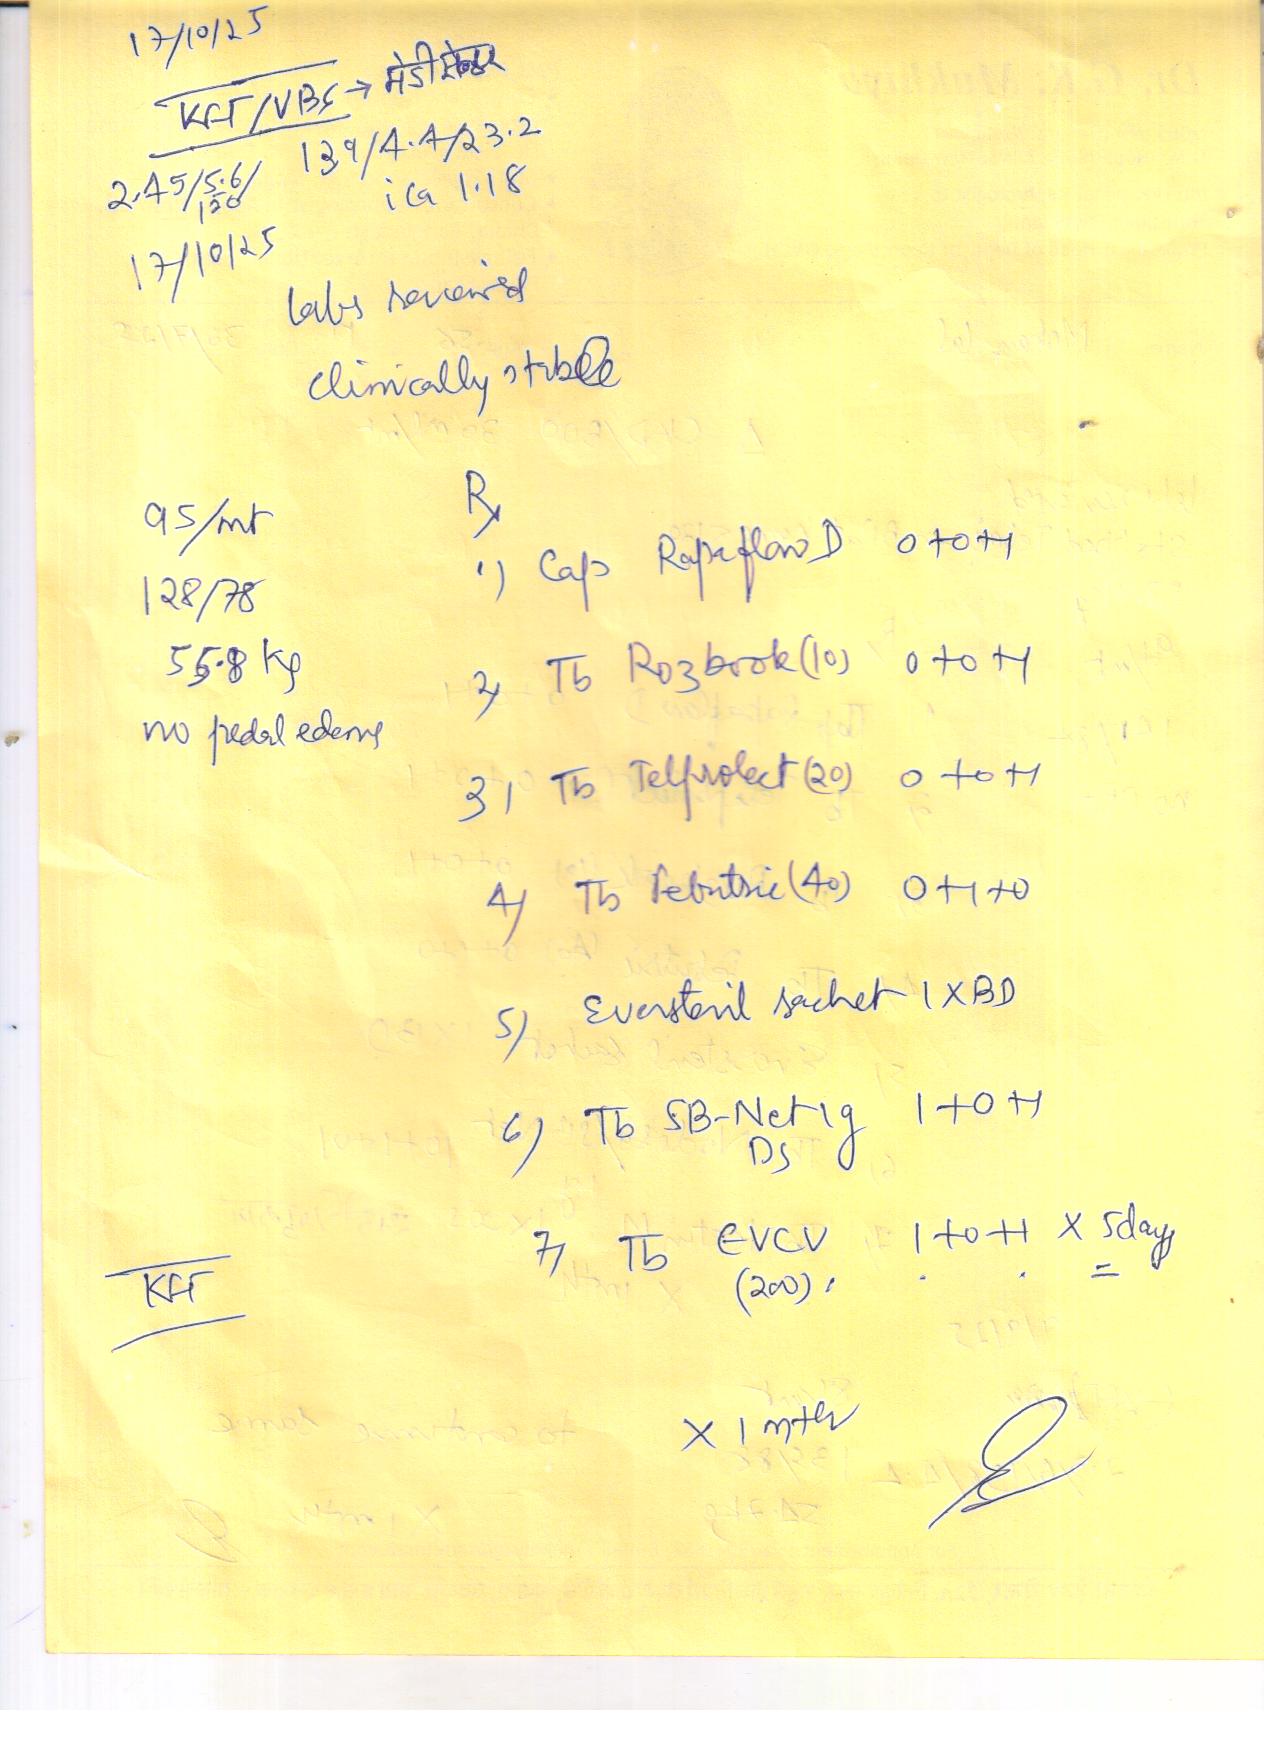 17/10/25
KFT/VBG →
2.45/5.6/120 139/4.4/23.2
ica 1.18
17/10/25
labs reviewed
clinically stable
95/mt
128/78
55.8 Kg
no pedal edema
Rx
1) Cap Rapiflow D 0+0+1
2) Tb Rozbrook (10) 0+0+1
3) Tb Telprotect (20) 0+0+1
4) Tb Febutric (40) 0+1+0
5) Everstenil sachet 1XBD
6) Tb SB-Net 1g 1+0+1
DS
7) Tb EVCV 1+0+1 X 5days
(200)
KFT
X 1 mth